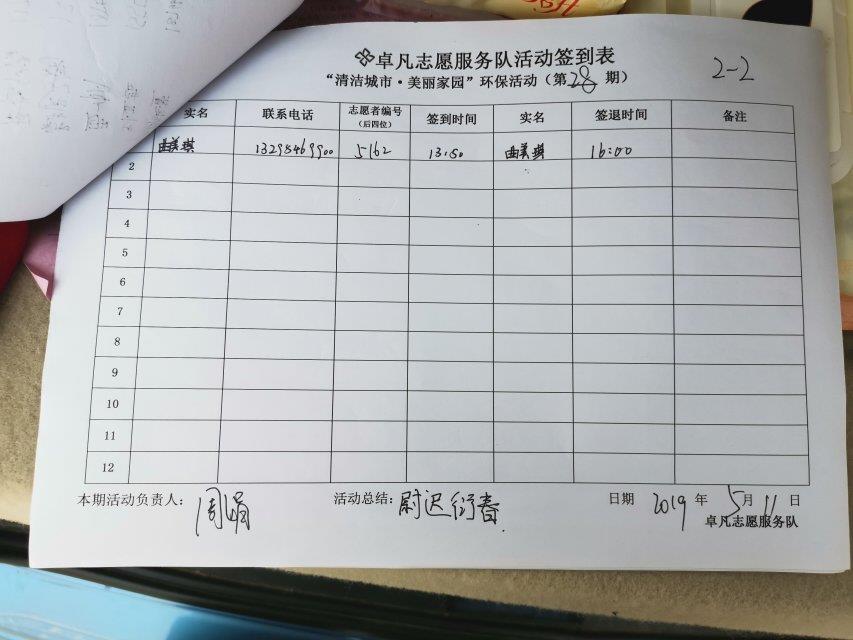 卓凡志愿服务队活动签到表
“清洁城市·美丽家园”环保活动（第28期）
2-2
实名 联系电话 志愿者编号（后四位） 签到时间 实名 签退时间 备注
曲美琪 13295469900 5162 13:50 曲美琪 16:00
2
3
4
5
6
7
8
9
10
11
12
本期活动负责人：周娟 活动总结：尉迟衍春 日期 2019 年 5 月 11 日
卓凡志愿服务队